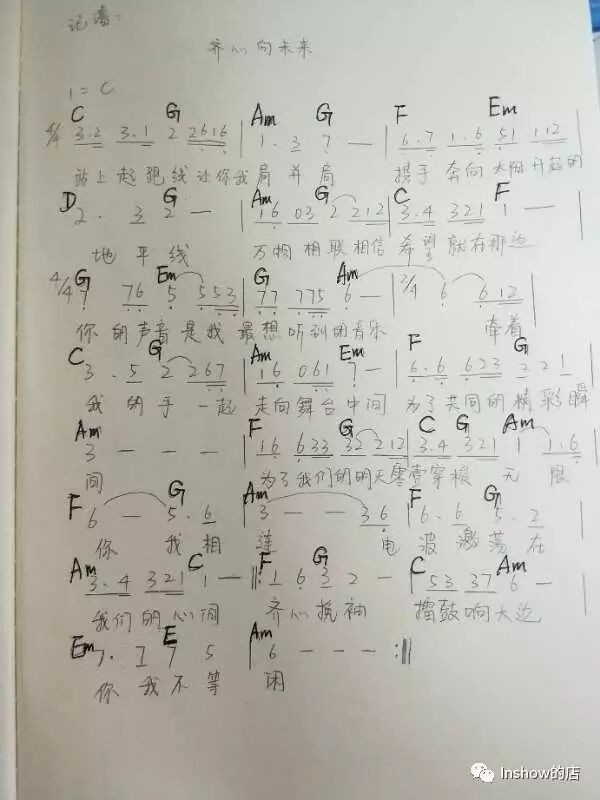 记谱:
齐心向未来
1=C
C G Am G F Em
4/4 3.2 3.1 2 2616 | 1.3 7 — | 6.7 1.6 51 112
站上起跑线让你我肩并肩 携手奔向太阳升起的
D G Am G C F
2. 3 2 — | 16 03 2 212 | 3.4 321 1 — |
地平线 万物相联相信希望就在那边
G Em G Am
4/4 7 76 5 553 | 77 775 6 — | 2/4 6 612 |
你的声音是我最想听到的音乐 牵着
C G Am Em F G
3.5 2 267 | 16 061 7 — | 6.6 623 2 21
我的手一起走向舞台中间 为了共同的精彩瞬
Am F G C G Am
3 — — — | 16 633 32 212 | 3.4 321 1 1.6
间 为了我们的明天零壹穿梭无限
F G Am F G
6 — 5.6 | 3 — — 36 | 6.6 5.2
你我相连 电波激荡在
Am C F G C Am
3.4 321 1 — ‖: 1 6 3 2 — | 53 37 6 —
我们的心间 齐心挽袖 擂鼓响天边
Em E Am
7. 7 7 5 | 6 — — — :‖
你我不等闲
Inshow的店